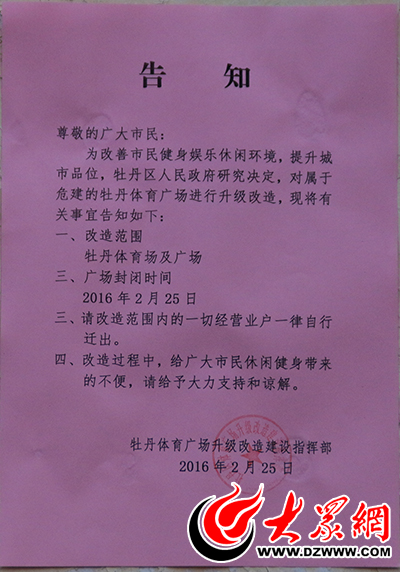 告 知
尊敬的广大市民：
为改善市民健身娱乐休闲环境，提升城
市品位，牡丹区人民政府研究决定，对属于
危建的牡丹体育广场进行升级改造，现将有
关事宜告知如下：
一、改造范围
牡丹体育场及广场
三、广场封闭时间
2016 年 2 月 25 日
三、请改造范围内的一切经营业户一律自行
迁出。
四、改造过程中，给广大市民休闲健身带来
的不便，请给予大力支持和谅解。
牡丹体育广场升级改造建设指挥部
2016 年 2 月 25 日
大众網
WWW.DZWWW.COM